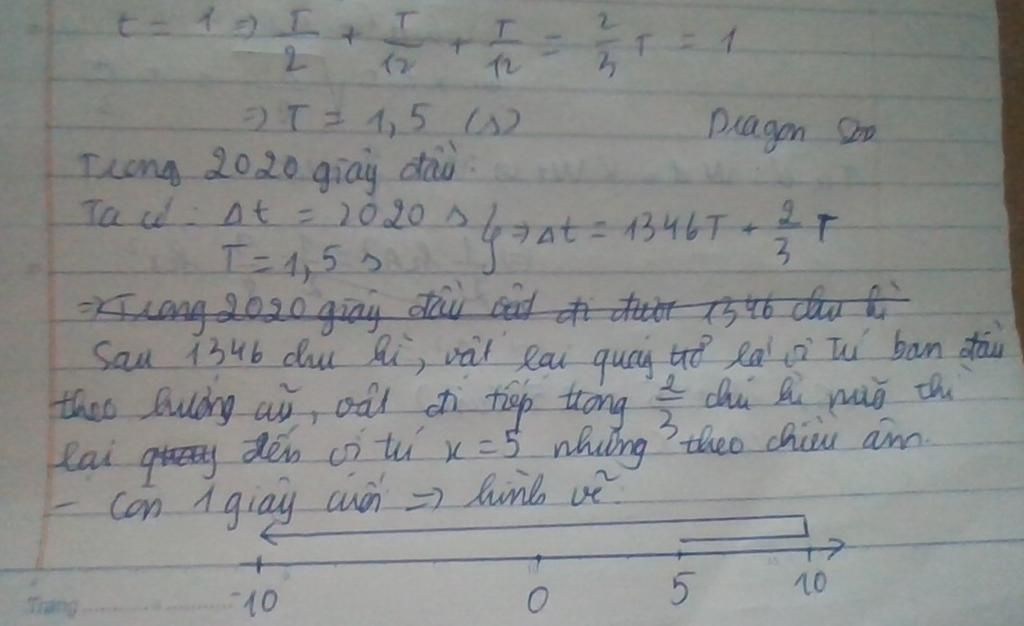 t = 1 => T/2 + T/12 + T/12 = 2/3 T = 1
=> T = 1,5 (s) Dragon
Trong 2020 giây đầu:
Ta có: Δt = 2020 s } => Δt = 1346T + 2/3 T
T = 1,5 s
=> Trong 2020 giây đầu vật đi được 1346 chu kì
Sau 1346 chu kì, vật lại quay trở lại vị trí ban đầu
theo hướng cũ, vật đi tiếp trong 2/3 chu kì nữa thì
lại quay đến vị trí x = 5 nhưng theo chiều âm.
- Còn 1 giây cuối => hình vẽ
-10 0 5 10
Trang